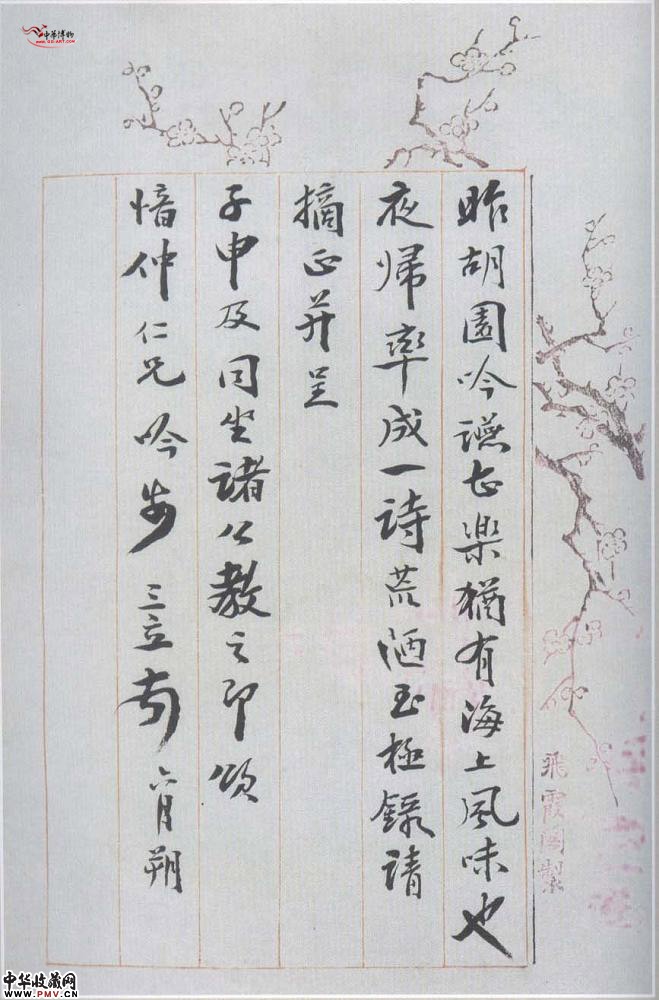 昨胡園吟讌甚樂猶有海上風味也
夜歸率成一詩荒陋至極錄請
摘正并呈
子申及同坐諸公教之即頌
愔仲仁兄吟 三立頓 六月朔
飛霞閣製
中华博物
中华收藏网
WWW.PMV.CN